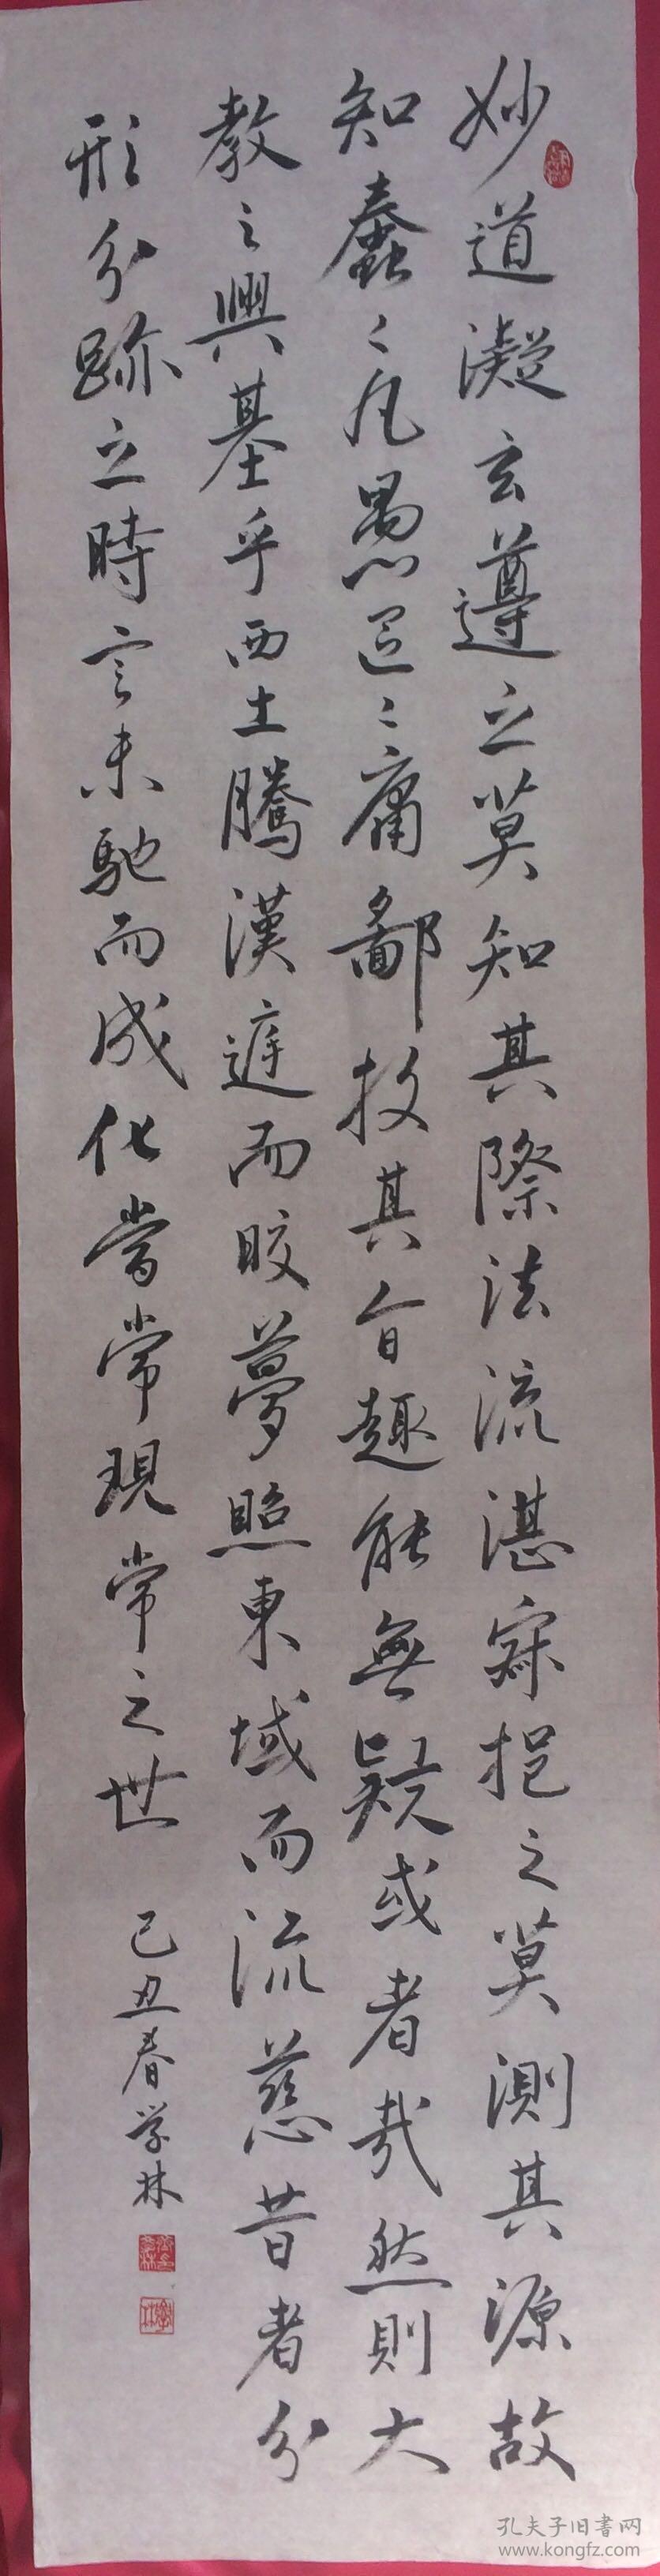 妙道凝玄遵之莫知其際法流湛寂挹之莫測其源故
知蠢々凡愚區々庸鄙投其旨趣能無疑或者哉然則大
教之興基乎西土騰漢遅而皎夢照東域而流慈昔者分
形分跡之時言未馳而成化當常現常之世
己丑春学林
孔夫子旧書网
www.kongfz.com